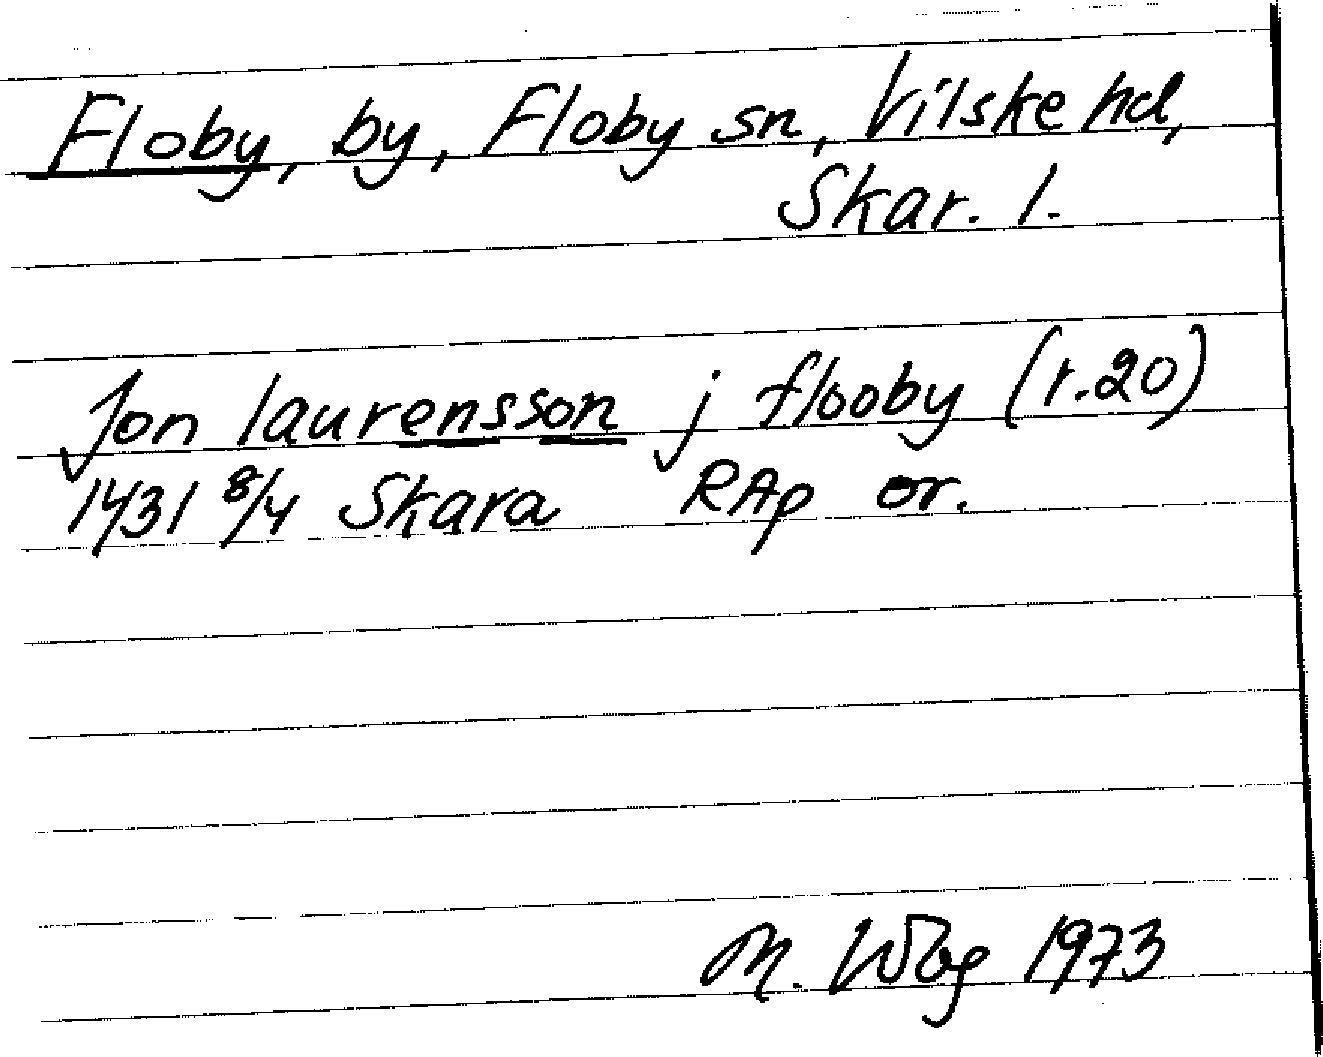 Floby, by, Floby sn, Vilske hd,
Skar. l.
Jon laurensson j flooby (r.20)
1431 8/4 Skara RAp or.
M. Wbg 1973